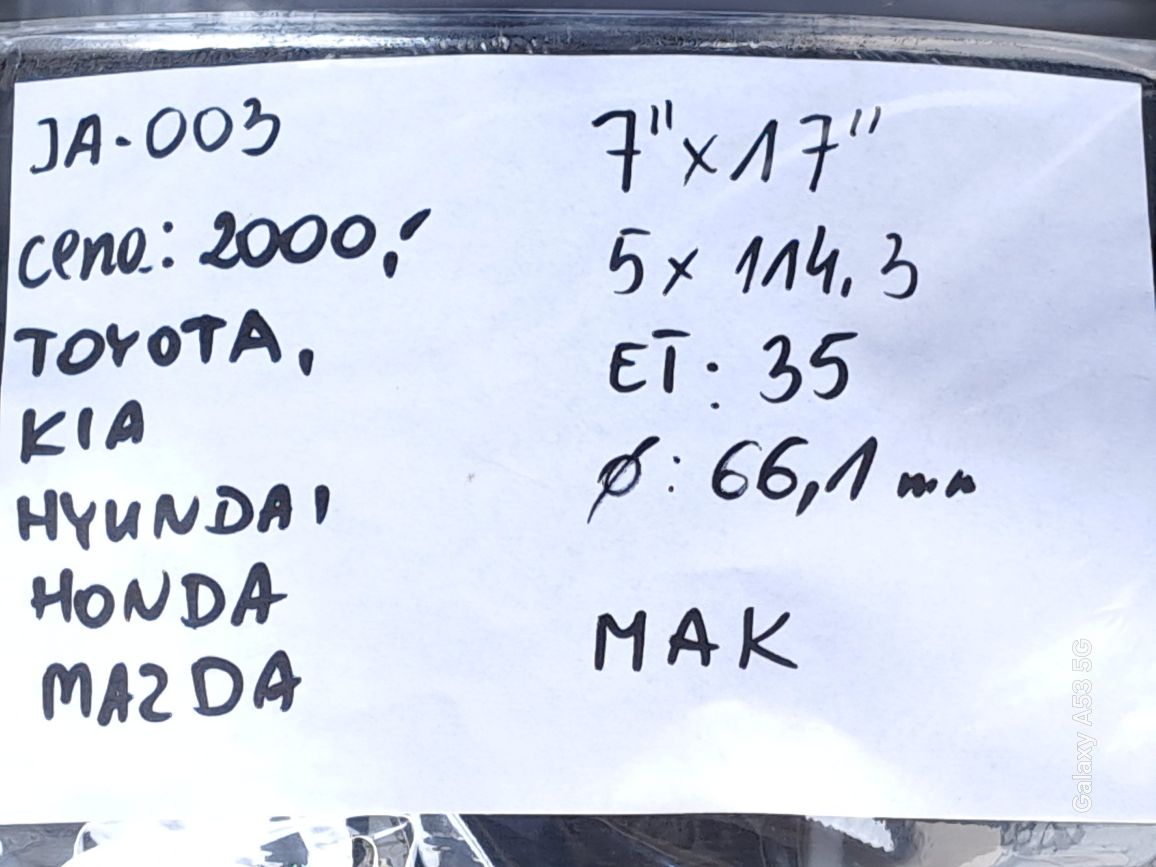 JA-003
cena: 2000,-
TOYOTA,
KIA
HYUNDAI
HONDA
MAZDA
7" x 17"
5 x 114.3
ET: 35
Ø: 66,1 mm
MAK
Galaxy A53 5G